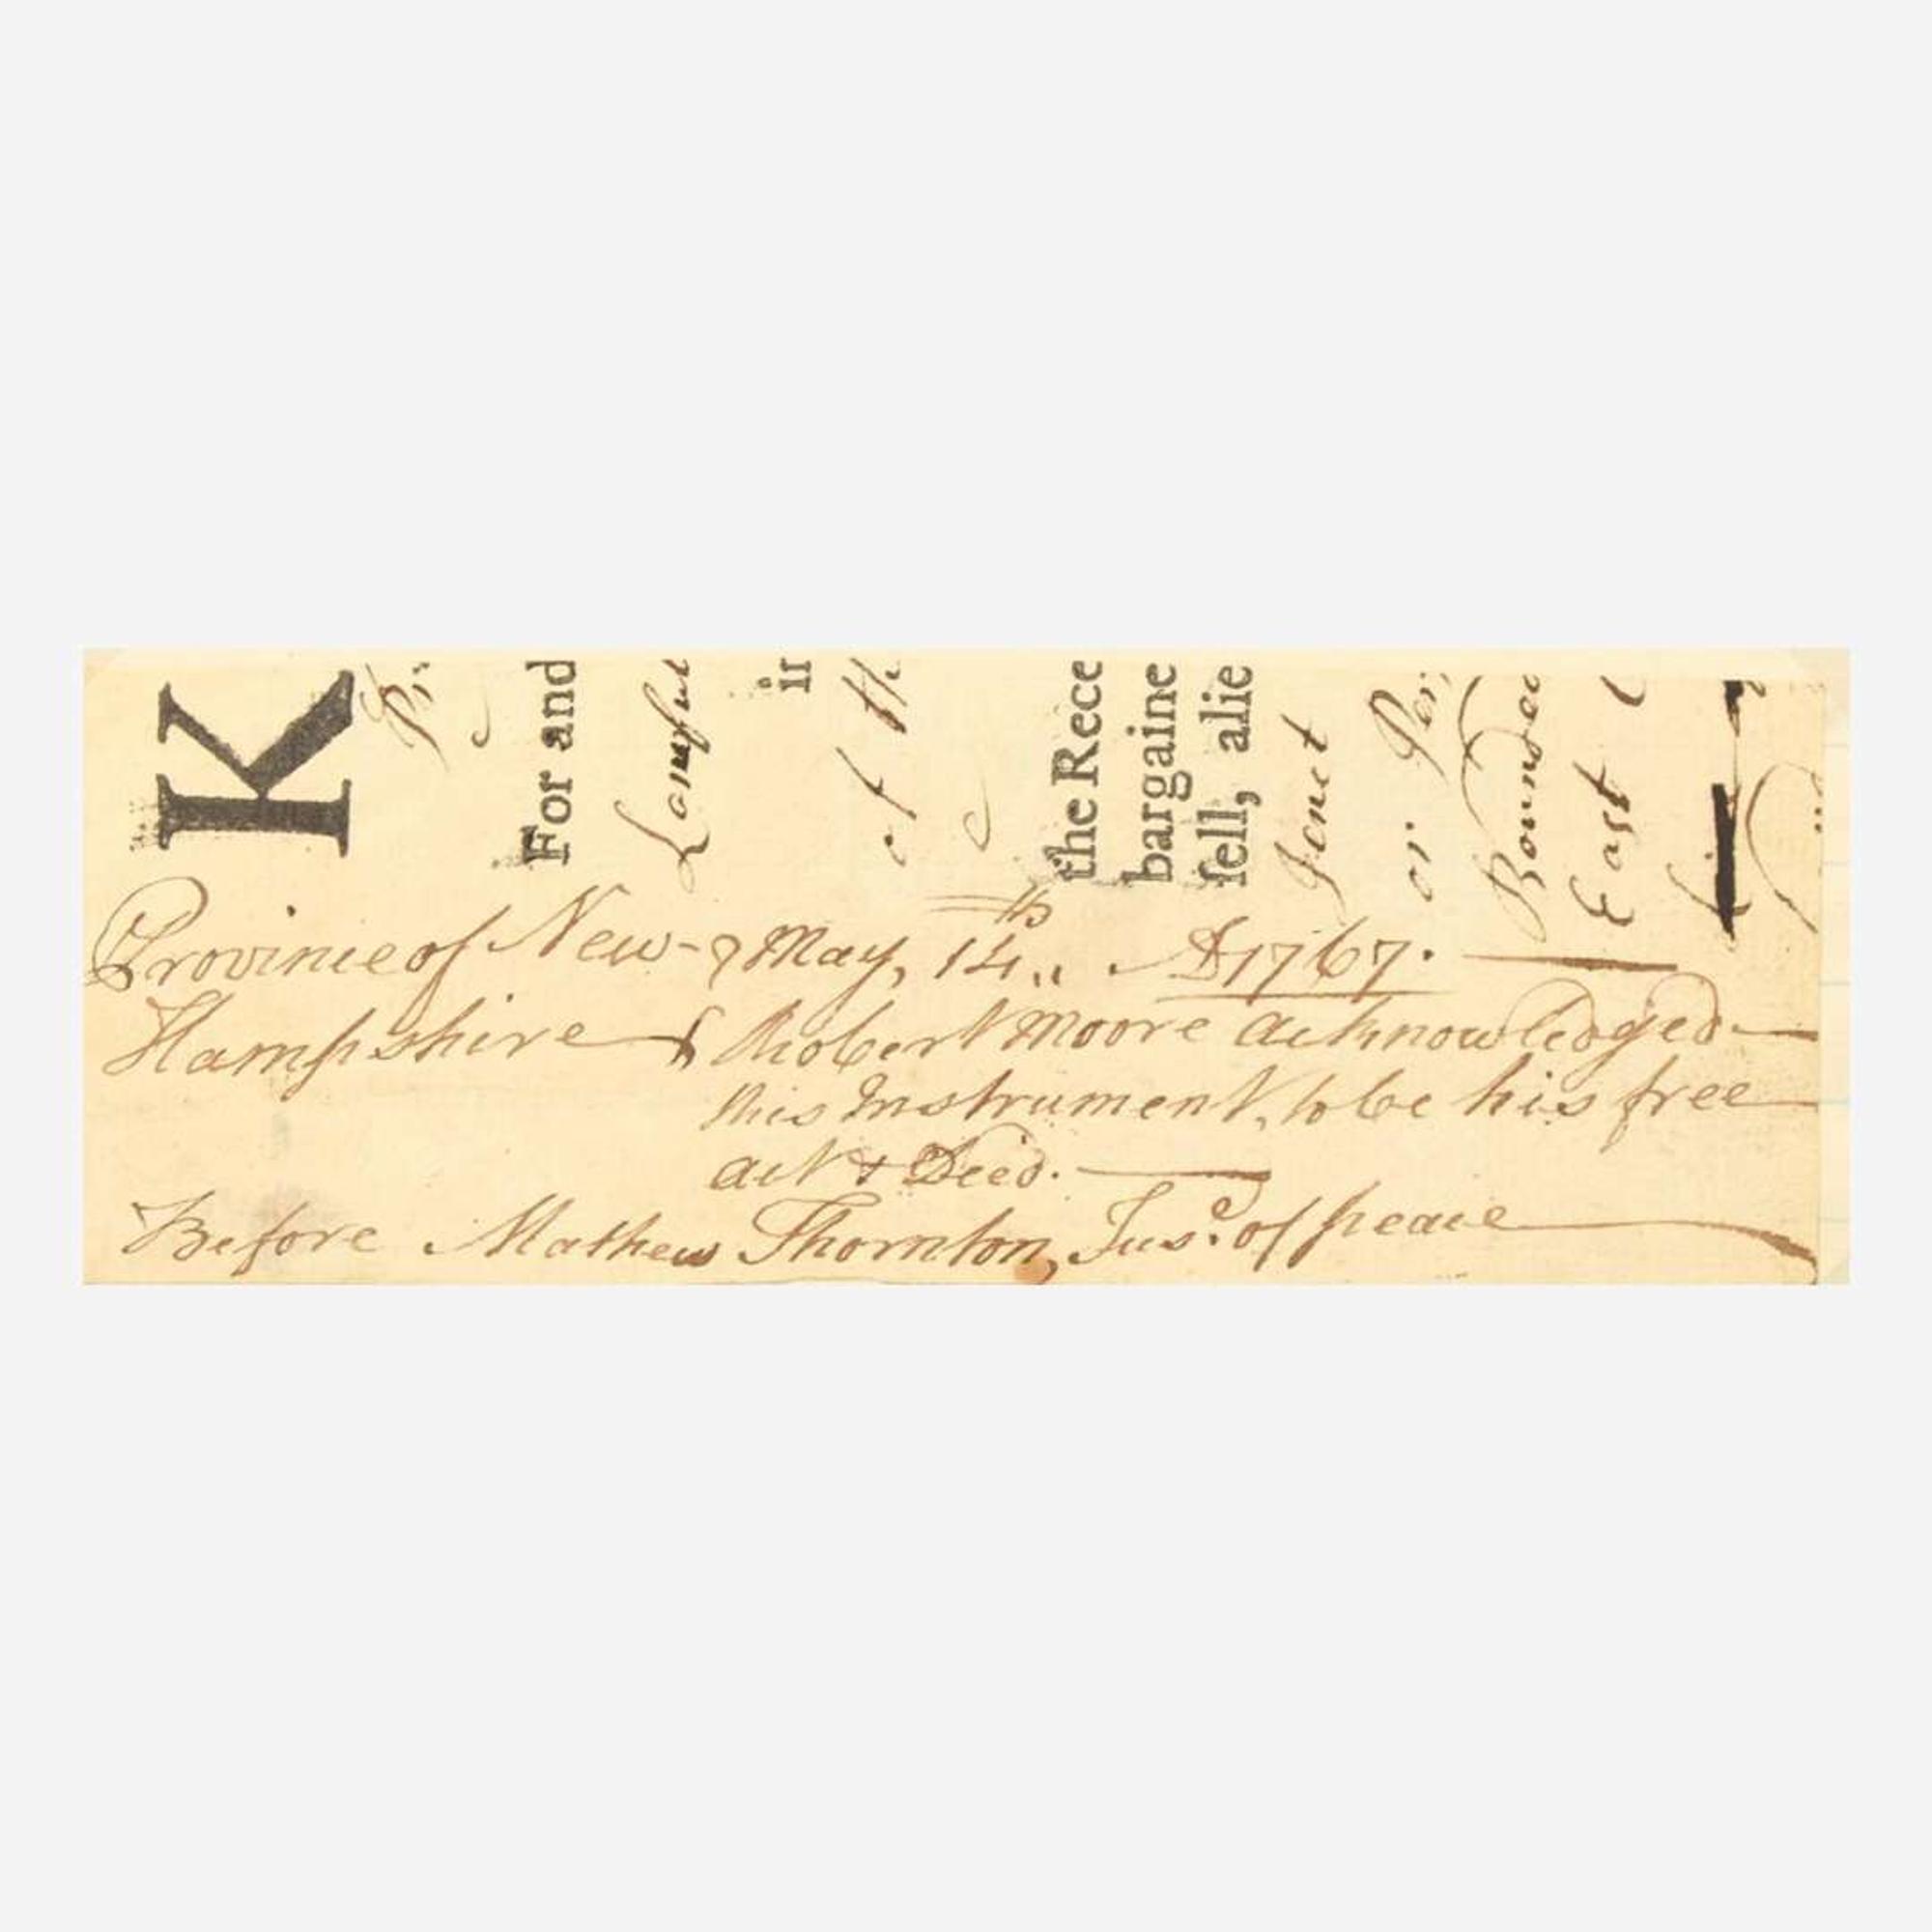 K
Pr
For and
Lawful
in
of th
the Rece
bargaine
ſell, alie
Janet
or
Bounded
East
Province of New- } May, 14th,, AD 1767.
Hampshire } Robert Moore acknowledged
this Instrument, to be his free
act & Deed.
Before Mathew Thornton, Juse. of peace